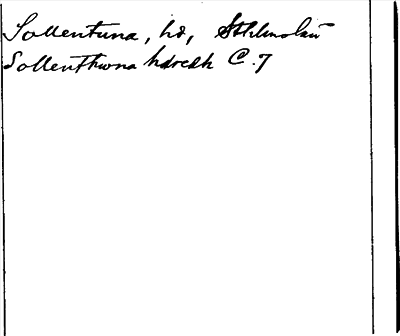 Sollentuna, hd, Sthlms län
Sollenthwna hdredh C. 7